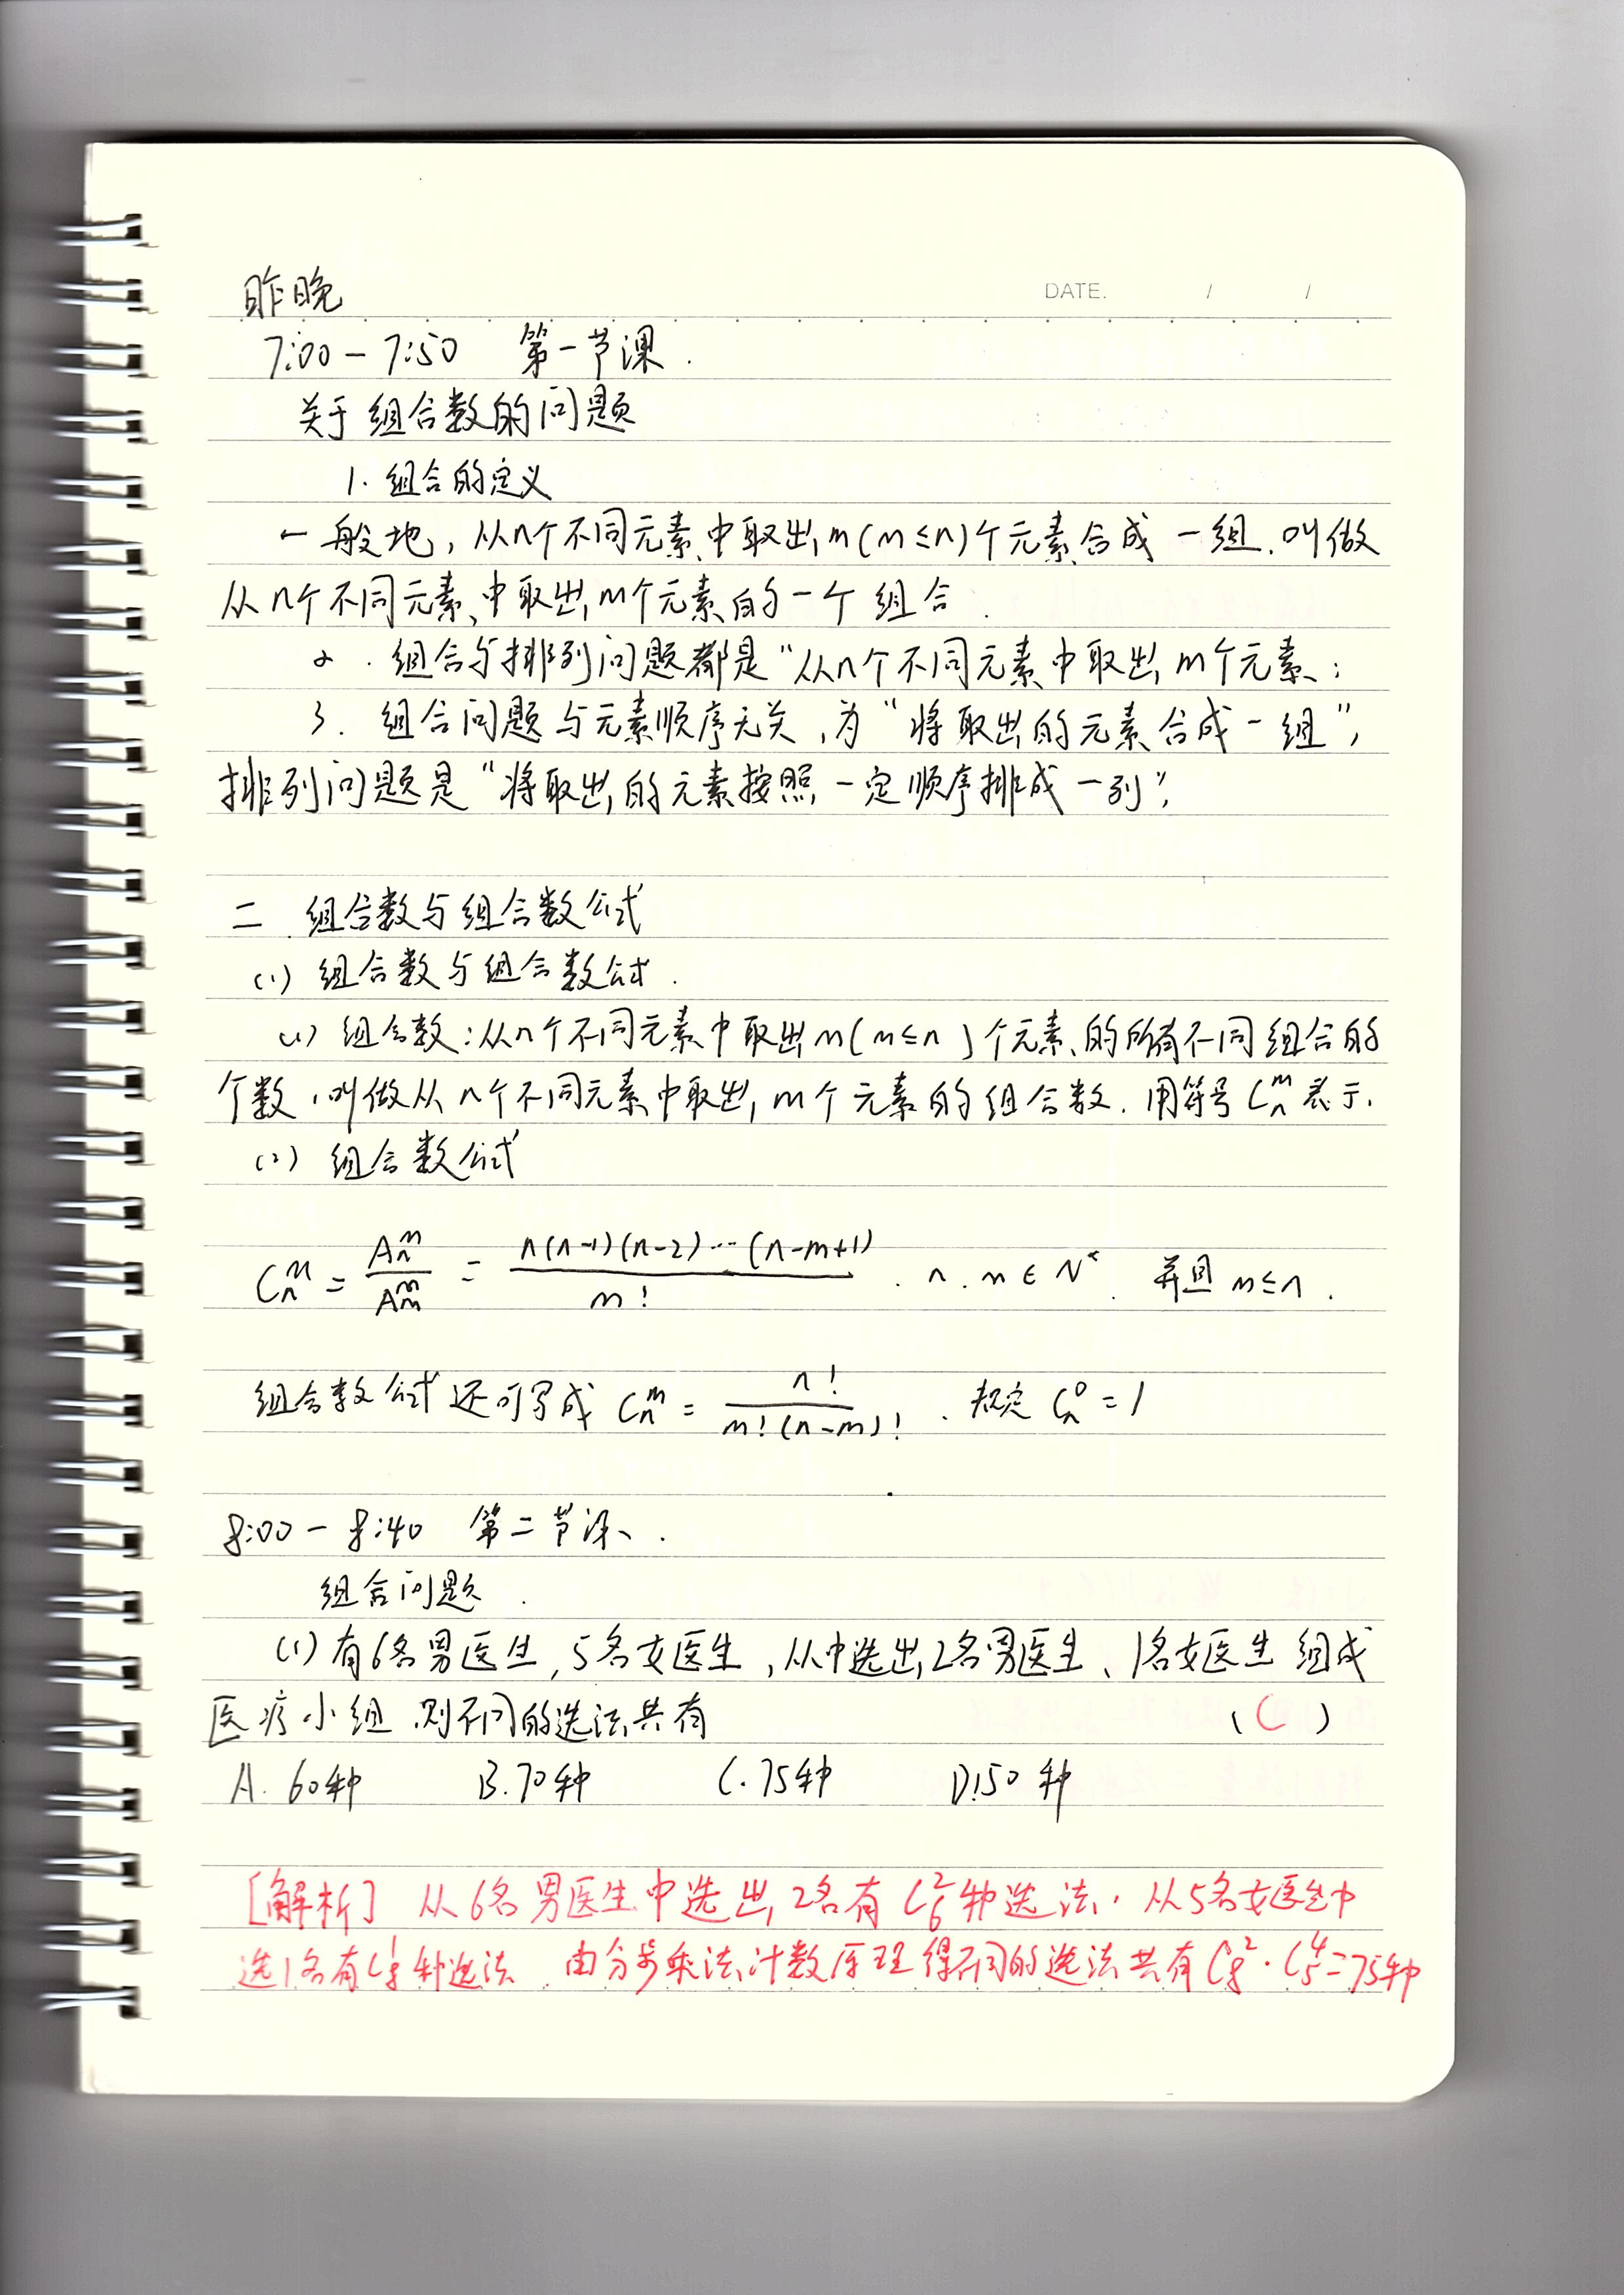 DATE. / /
昨晚
7:00 - 7:50 第一节课.
关于组合数的问题
1. 组合的定义
一般地,从n个不同元素中取出m(m≤n)个元素合成一组.叫做
从n个不同元素中取出m个元素的一个组合.
2. 组合与排列问题都是“从n个不同元素中取出m个元素;
3. 组合问题与元素顺序无关,为“将取出的元素合成一组”,
排列问题是“将取出的元素按照一定顺序排成一列”.
二 组合数与组合数公式
(1) 组合数与组合数公式.
(1) 组合数:从n个不同元素中取出m(m≤n)个元素的所有不同组合的
个数,叫做从n个不同元素中取出m个元素的组合数.用符号Cₙᵐ表示.
(2) 组合数公式
Cₙᵐ = Aₙᵐ/Aₘᵐ = n(n-1)(n-2)…(n-m+1)/m! . n.m∈N* 并且m≤n.
组合数公式还可写成 Cₙᵐ = n!/m!(n-m)! . 规定 Cₙ⁰=1
8:00 - 8:40 第二节课.
组合问题.
(1)有6名男医生,5名女医生,从中选出2名男医生、1名女医生组成
医疗小组.则不同的选法共有 (C)
A. 60种 B.70种 C.75种 D.150种
[解析] 从6名男医生中选出2名有C₆²种选法.从5名女医生中
选1名有C¹种选法.由分步乘法计数原理得不同的选法共有C₈²·C₅⁴=75种